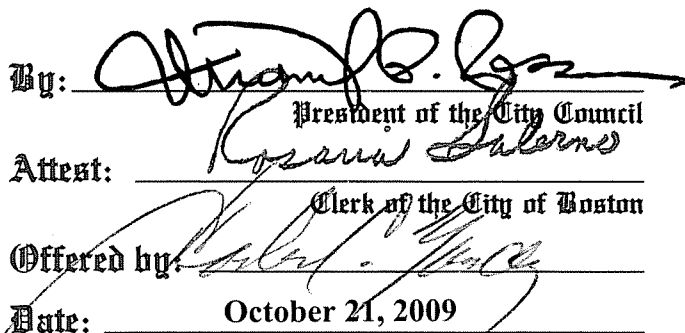 By:
President of the City Council
Rosaria Salerno
Attest:
Clerk of the City of Boston
Offered by:
Date: October 21, 2009